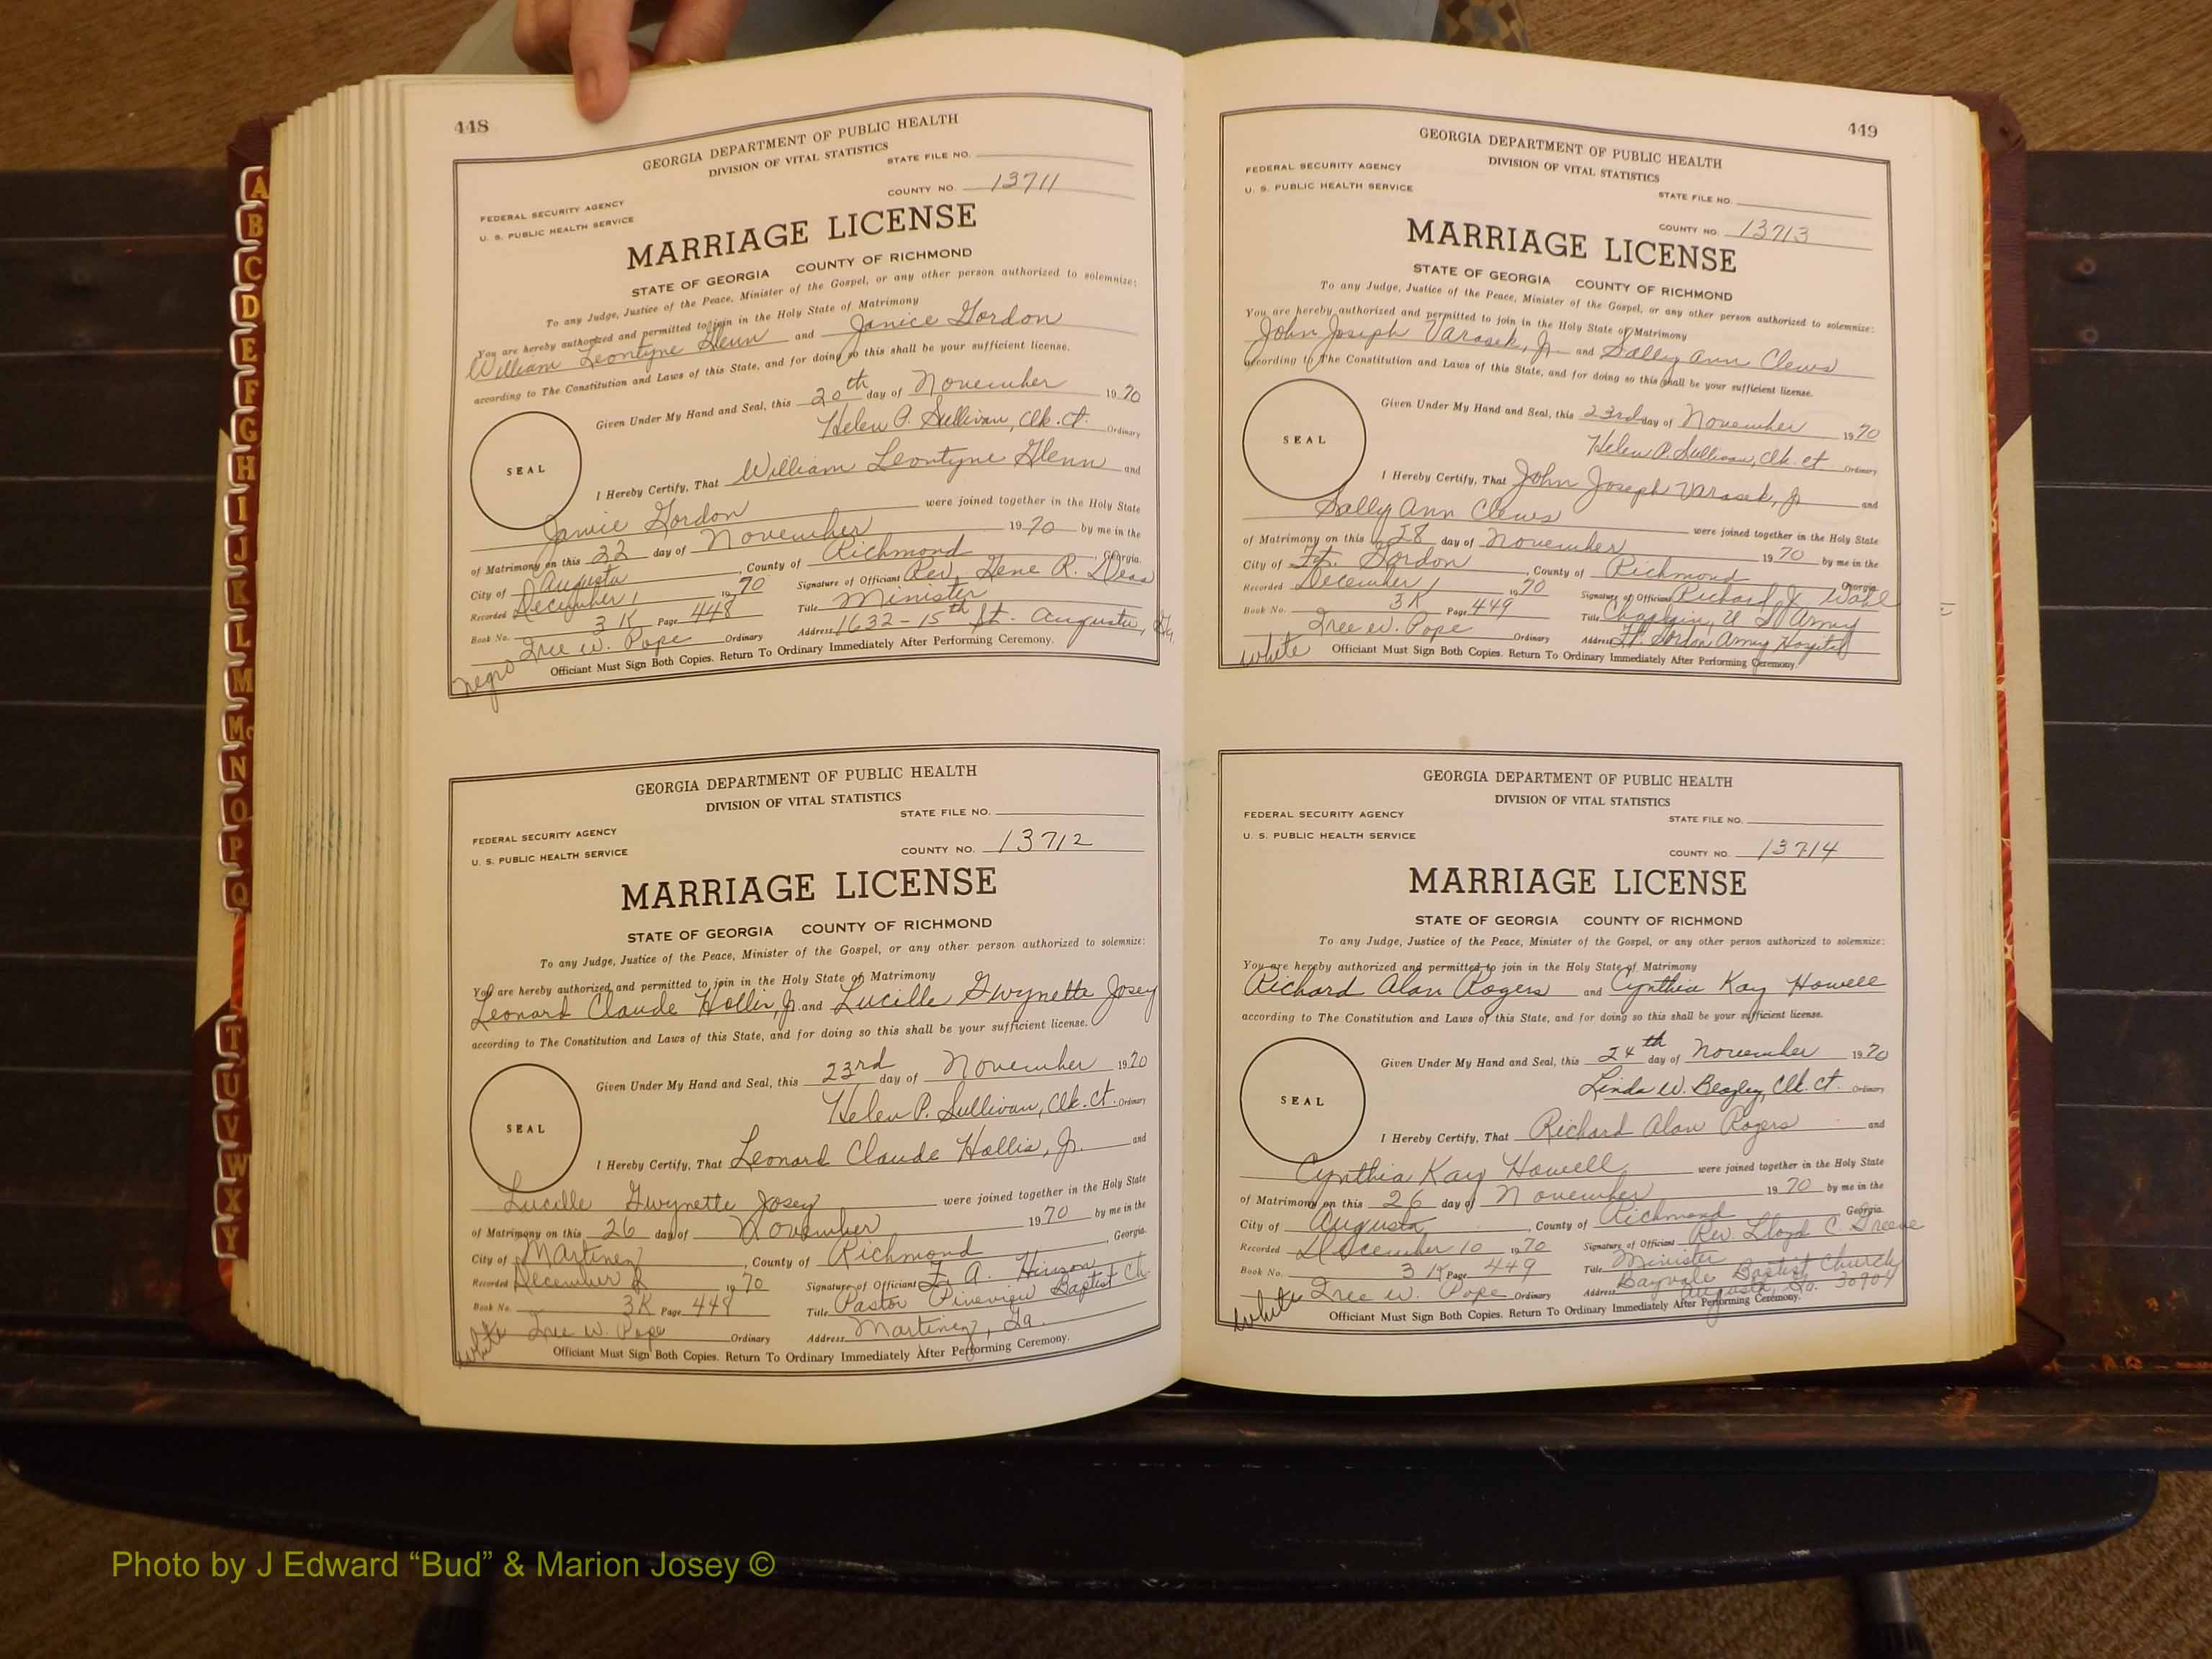 448
GEORGIA DEPARTMENT OF PUBLIC HEALTH
DIVISION OF VITAL STATISTICS
STATE FILE NO.
COUNTY NO. 13711
FEDERAL SECURITY AGENCY
U. S. PUBLIC HEALTH SERVICE
MARRIAGE LICENSE
STATE OF GEORGIA COUNTY OF RICHMOND
To any Judge, Justice of the Peace, Minister of the Gospel, or any other person authorized to solemnize:
You are hereby authorized and permitted to join in the Holy State of Matrimony
William Leontyne Glenn and Janice Gordon
according to The Constitution and Laws of this State, and for doing so this shall be your sufficient license.
Given Under My Hand and Seal, this 20th day of November 1970
Helen P. Sullivan, Clk. Ct. Ordinary
SEAL
I Hereby Certify, That William Leontyne Glenn and
Janice Gordon were joined together in the Holy State
of Matrimony on this 22 day of November 1970 by me in the
City of Augusta, County of Richmond, Georgia.
Recorded December 1 1970 Signature of Officiant Rev. Gene R. Dean
Book No. 3K Page 448 Title Minister
Tree W. Pope Ordinary Address 1632-15th St. Augusta, Ga.
negro Officiant Must Sign Both Copies. Return To Ordinary Immediately After Performing Ceremony.
GEORGIA DEPARTMENT OF PUBLIC HEALTH
DIVISION OF VITAL STATISTICS
STATE FILE NO.
FEDERAL SECURITY AGENCY
U. S. PUBLIC HEALTH SERVICE
COUNTY NO. 13712
MARRIAGE LICENSE
STATE OF GEORGIA COUNTY OF RICHMOND
To any Judge, Justice of the Peace, Minister of the Gospel, or any other person authorized to solemnize:
You are hereby authorized and permitted to join in the Holy State of Matrimony
Leonard Claude Hollis, Jr. and Lucille Gwynette Josey
according to The Constitution and Laws of this State, and for doing so this shall be your sufficient license.
Given Under My Hand and Seal, this 23rd day of November 1970
Helen P. Sullivan, Clk. Ct. Ordinary
SEAL
I Hereby Certify, That Leonard Claude Hollis, Jr. and
Lucille Gwynette Josey were joined together in the Holy State
of Matrimony on this 26 day of November 1970 by me in the
City of Martinez, County of Richmond, Georgia.
Recorded December 2 1970 Signature of Officiant F. A. Hinson
Book No. 3K Page 448 Title Pastor Pineview Baptist Ch
white Tree W. Pope Ordinary Address Martinez, Ga.
Officiant Must Sign Both Copies. Return To Ordinary Immediately After Performing Ceremony.
449
GEORGIA DEPARTMENT OF PUBLIC HEALTH
DIVISION OF VITAL STATISTICS
FEDERAL SECURITY AGENCY
U. S. PUBLIC HEALTH SERVICE
STATE FILE NO.
COUNTY NO. 13713
MARRIAGE LICENSE
STATE OF GEORGIA COUNTY OF RICHMOND
To any Judge, Justice of the Peace, Minister of the Gospel, or any other person authorized to solemnize:
You are hereby authorized and permitted to join in the Holy State of Matrimony
John Joseph Varasek, Jr. and Sally Ann Clews
according to The Constitution and Laws of this State, and for doing so this shall be your sufficient license.
Given Under My Hand and Seal, this 23rd day of November 1970
Helen P. Sullivan, Clk. Ct Ordinary
SEAL
I Hereby Certify, That John Joseph Varasek, Jr and
Sally Ann Clews were joined together in the Holy State
of Matrimony on this 28 day of November 1970 by me in the
City of Ft. Gordon, County of Richmond Georgia.
Recorded December 1 1970 Signature of Officiant Richard J. Wahl
Book No. 3K Page 449 Title Chaplain, U S Army
Tree W. Pope Ordinary Address Ft. Gordon Army Hospital
white Officiant Must Sign Both Copies. Return To Ordinary Immediately After Performing Ceremony.
GEORGIA DEPARTMENT OF PUBLIC HEALTH
DIVISION OF VITAL STATISTICS
FEDERAL SECURITY AGENCY
STATE FILE NO.
U. S. PUBLIC HEALTH SERVICE
COUNTY NO. 13714
MARRIAGE LICENSE
STATE OF GEORGIA COUNTY OF RICHMOND
To any Judge, Justice of the Peace, Minister of the Gospel, or any other person authorized to solemnize:
You are hereby authorized and permitted to join in the Holy State of Matrimony
Richard Alan Rogers and Cynthia Kay Howell
according to The Constitution and Laws of this State, and for doing so this shall be your sufficient license.
Given Under My Hand and Seal, this 24th day of November 1970
Linda W. Beazley, Clk. Ct. Ordinary
SEAL
I Hereby Certify, That Richard Alan Rogers and
Cynthia Kay Howell were joined together in the Holy State
of Matrimony on this 26 day of November 1970 by me in the
City of Augusta, County of Richmond Georgia.
Recorded December 10 1970 Signature of Officiant Rev. Lloyd C. Greene
Book No. 3K Page 449 Title Minister
Bayvale Baptist Church
white Tree W. Pope Ordinary Address Augusta, Ga. 30904
Officiant Must Sign Both Copies. Return To Ordinary Immediately After Performing Ceremony.
A
B
C
D
E
F
G
H
I
J
K
L
M
Mc
N
O
P
Q
T
U
V
W
X
Y
Photo by J Edward “Bud” & Marion Josey ©